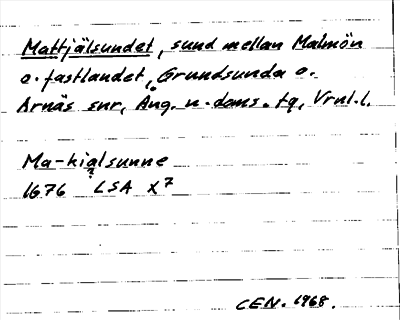 Mattjälsundet, sund mellan Malmön
o. fastlandet, Grundsunda o.
Arnäs snr, Ång. n. doms. tg, Vrnl. l.
Ma-kialsunne
?
1676 LSA X7
CEN. 1968.